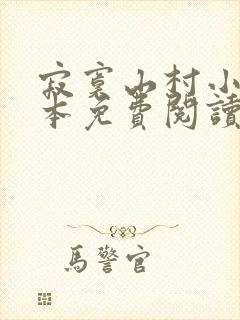 寂寞山村小
本免費閱讀
馬警官